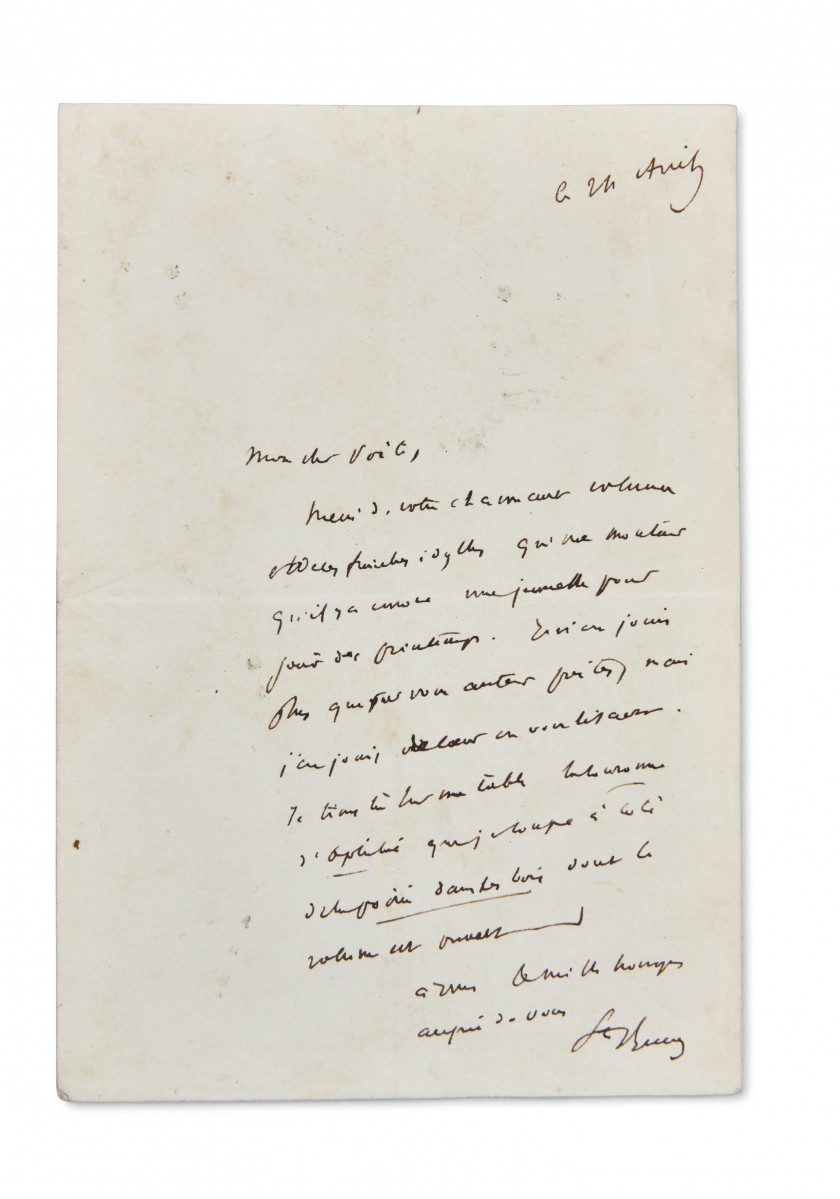 le 24 Avril
Mon cher Poète,
Merci de votre charmant volume
et de ces fraîches idylles qui me montrent
qu'il y a encore une jeunesse pour
jouir des printemps. Je n'en jouis
plus que par vous autres poètes, mais
j'en jouis de coeur en vous lisant.
Je tiens là sur ma table la couronne
d'Ophélie que je coupe à côté
de la poésie dans les bois dont le
volume est ouvert
Ste Beuve